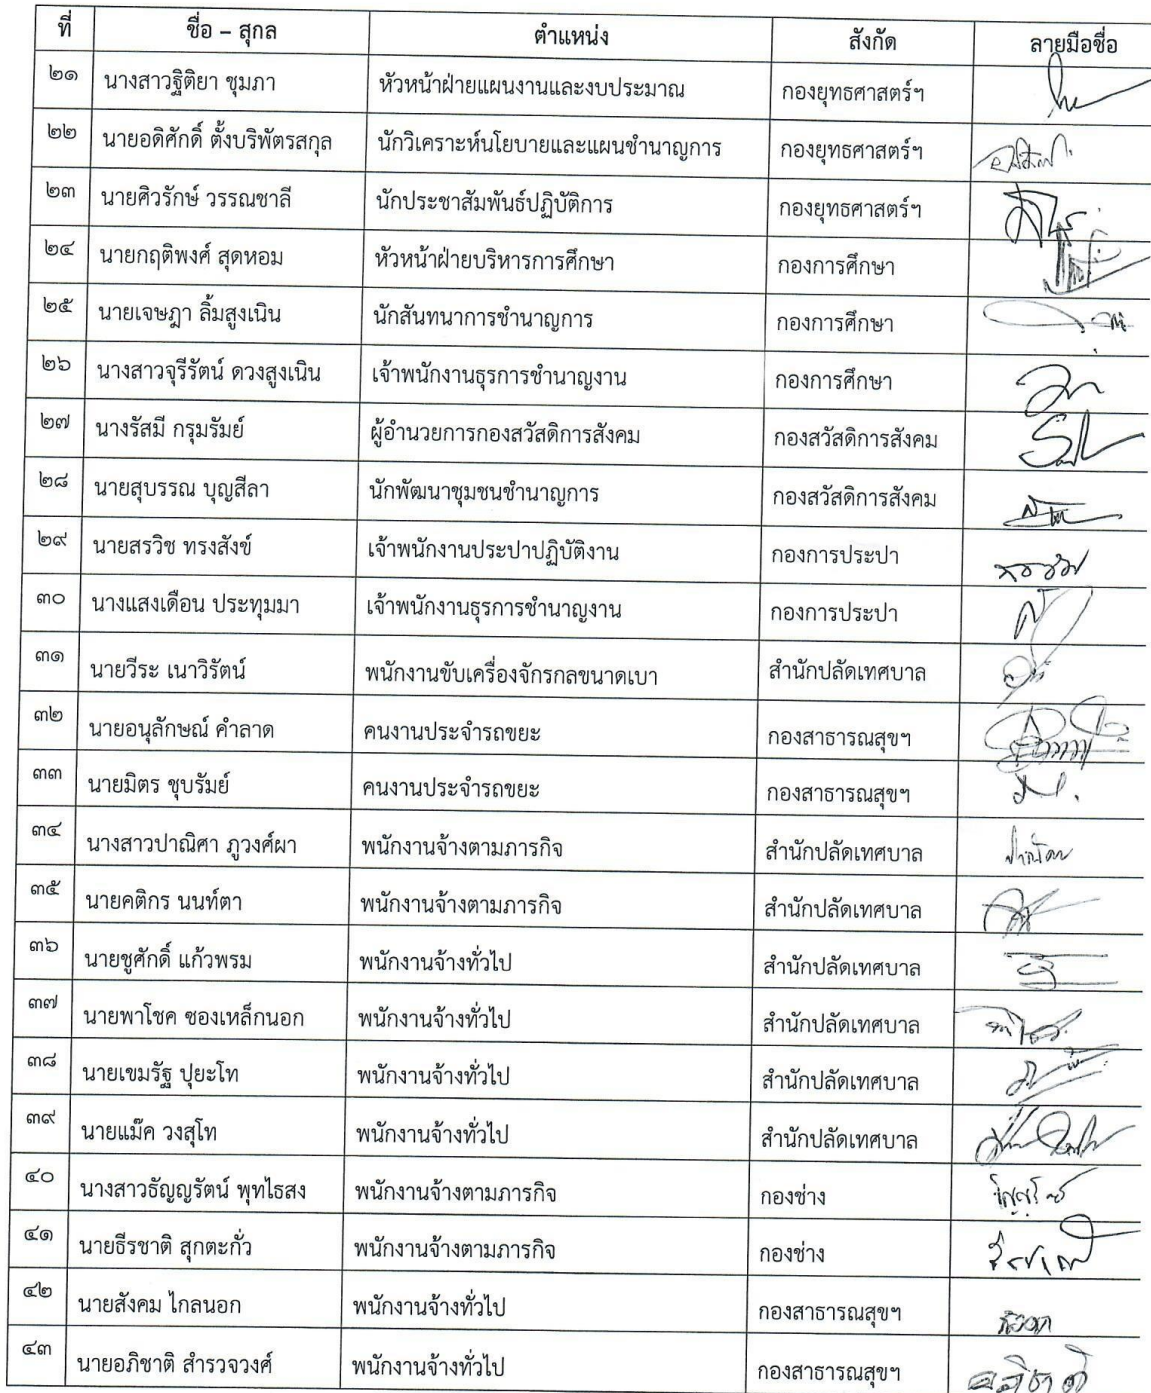 ที่ ชื่อ – สุกล ตำแหน่ง สังกัด ลายมือชื่อ
๒๑ นางสาวฐิติยา ชุมภา หัวหน้าฝ่ายแผนงานและงบประมาณ กองยุทธศาสตร์ฯ
๒๒ นายอดิศักดิ์ ตั้งบริพัตรสกุล นักวิเคราะห์นโยบายและแผนชำนาญการ กองยุทธศาสตร์ฯ
๒๓ นายศิวรักษ์ วรรณชาลี นักประชาสัมพันธ์ปฏิบัติการ กองยุทธศาสตร์ฯ
๒๔ นายกฤติพงศ์ สุดหอม หัวหน้าฝ่ายบริหารการศึกษา กองการศึกษา
๒๕ นายเจษฎา ลิ้มสูงเนิน นักสันทนาการชำนาญการ กองการศึกษา
๒๖ นางสาวจุรีรัตน์ ดวงสูงเนิน เจ้าพนักงานธุรการชำนาญงาน กองการศึกษา
๒๗ นางรัสมี กรุมรัมย์ ผู้อำนวยการกองสวัสดิการสังคม กองสวัสดิการสังคม
๒๘ นายสุบรรณ บุญสีลา นักพัฒนาชุมชนชำนาญการ กองสวัสดิการสังคม
๒๙ นายสรวิช ทรงสังข์ เจ้าพนักงานประปาปฏิบัติงาน กองการประปา
๓๐ นางแสงเดือน ประทุมมา เจ้าพนักงานธุรการชำนาญงาน กองการประปา
๓๑ นายวีระ เนาวิรัตน์ พนักงานขับเครื่องจักรกลขนาดเบา สำนักปลัดเทศบาล
๓๒ นายอนุลักษณ์ คำลาด คนงานประจำรถขยะ กองสาธารณสุขฯ
๓๓ นายมิตร ชุบรัมย์ คนงานประจำรถขยะ กองสาธารณสุขฯ
๓๔ นางสาวปาณิศา ภูวงศ์ผา พนักงานจ้างตามภารกิจ สำนักปลัดเทศบาล
๓๕ นายคติกร นนท์ตา พนักงานจ้างตามภารกิจ สำนักปลัดเทศบาล
๓๖ นายชูศักดิ์ แก้วพรม พนักงานจ้างทั่วไป สำนักปลัดเทศบาล
๓๗ นายพาโชค ซองเหล็กนอก พนักงานจ้างทั่วไป สำนักปลัดเทศบาล
๓๘ นายเขมรัฐ ปุยะโท พนักงานจ้างทั่วไป สำนักปลัดเทศบาล
๓๙ นายแม๊ค วงสุโท พนักงานจ้างทั่วไป สำนักปลัดเทศบาล
๔๐ นางสาวธัญญรัตน์ พุทไธสง พนักงานจ้างตามภารกิจ กองช่าง
๔๑ นายธีรชาติ สุกตะกั่ว พนักงานจ้างตามภารกิจ กองช่าง
๔๒ นายสังคม ไกลนอก พนักงานจ้างทั่วไป กองสาธารณสุขฯ
๔๓ นายอภิชาติ สำรวจวงศ์ พนักงานจ้างทั่วไป กองสาธารณสุขฯ อภิชาติ